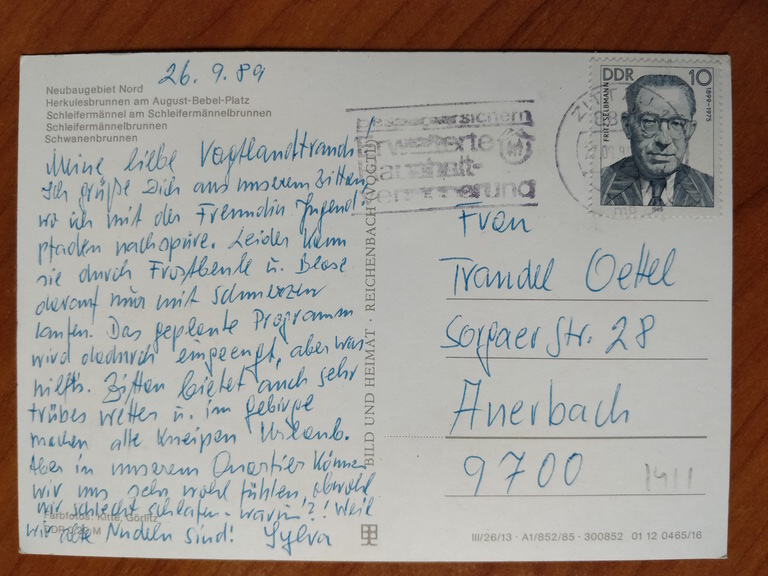 26.9.89
Neubaugebiet Nord
Herkulesbrunnen am August-Bebel-Platz
Schleifermännel am Schleifermännelbrunnen
Schleifermännelbrunnen
Schwanenbrunnen
Meine liebe Vogtlandtraudl!
Ich grüße Dich aus unserem Zittau,
wo ich mit der Freundin Jugend-
pfaden nachspüre. Leider kann
sie durch Frostbeule u. Blase
darauf nur mit Schmerzen
laufen. Das geplante Programm
wird dadurch eingeengt, aber was
hilfts. Zittau bietet auch sehr
trübes Wetter u. im Gebirge
machen alle Kneipen Urlaub.
Aber in unserem Quartier können
wir uns sehr wohl fühlen, obwohl
wir schlecht schlafen - warum?! Weil
wir alte Nudeln sind! Sylva
Farbfotos: Kitte, Görlitz
DDR M
BILD UND HEIMAT · REICHENBACH (VOGTL)
versichern
Erweiterte
Haushalt-
versicherung
DDR 10
FRITZ SELBMANN
1899-1975
Frau
Traudel Oettel
Sorgaer Str. 28
Auerbach
9700
1411
III/26/13 · A1/852/85 · 300852 01 12 0465/16